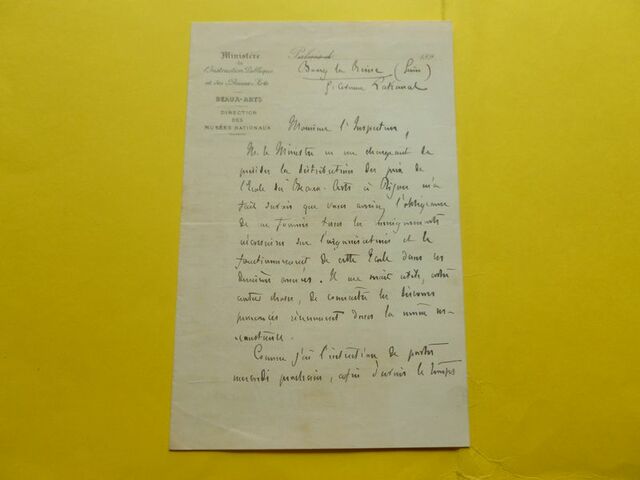 Ministère
de
l'Instruction Publique
et des Beaux-Arts
BEAUX-ARTS
DIRECTION
DES
MUSÉES NATIONAUX
189
Bourg la Reine (Seine)
Monsieur l'Inspecteur,
M. le Ministre en me chargeant de
présider la distribution des prix de
l'Ecole des Beaux-Arts à Dijon m'a
fait savoir que vous auriez l'obligeance
de me fournir tous les renseignements
nécessaires sur l'organisation et le
fonctionnement de cette Ecole dans ces
dernières années. Il me serait utile, entre
autres choses, de connaître les discours
prononcés récemment dans la même cir-
constance.
Comme j'ai l'intention de partir
mercredi prochain, afin d'avoir le temps